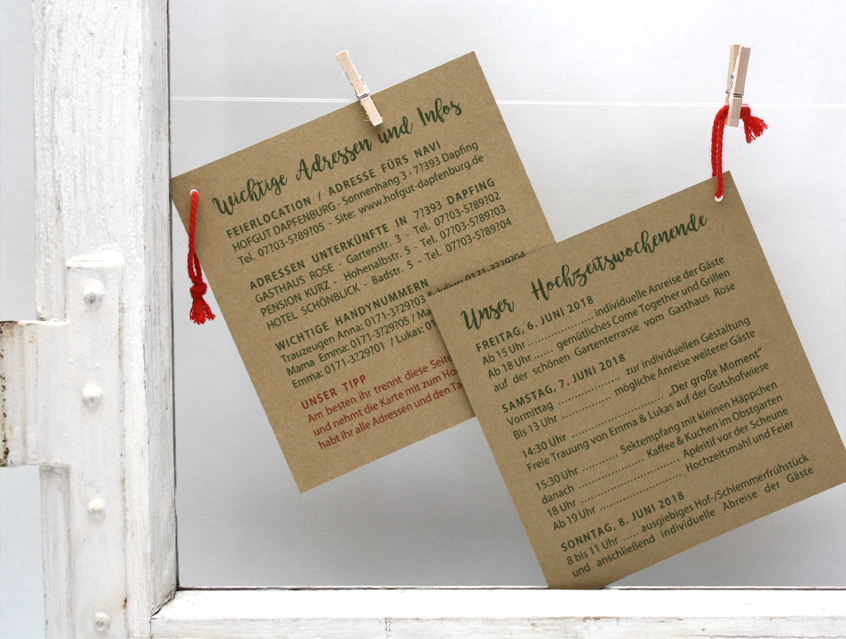 Wichtige Adressen und Infos
FEIERLOCATION / ADRESSE FÜRS NAVI
HOFGUT DAPFENBURG - Sonnenhang 3 - 7?393 Dapfing
Tel. 07?03-5?89?05 - Site: www.hofgut-dapfenburg.de
ADRESSEN UNTERKÜNFTE IN 7?393 DAPFING
GASTHAUS ROSE - Gartenstr. 3 - Tel. 07?03-5?89?02
PENSION KURZ - Hohenalbstr. 5 - Tel. 07?03-5?89?03
HOTEL SCHÖNBLICK - Badstr. 5 - Tel. 07?03-5?89?04
WICHTIGE HANDYNUMMERN
Trauzeugen Anna: 0171-3?29?03 & Julius: 0171-3?29?04
Mama Emma: 0171-3?29?05 /
Emma: 0171-3?29?01 / Lukas:
UNSER TIPP
Am besten ihr trennt diese Seite
und nehmt die Karte mit zum
habt ihr alle Adressen und den
Unser Hochzeitswochenende
FREITAG, 6. JUNI 2018
Ab 15 Uhr ........................ individuelle Anreise der Gäste
Ab 18 Uhr ...... gemütliches Come Together und Grillen
auf der schönen Gartenterrasse vom Gasthaus Rose
SAMSTAG, 7. JUNI 2018
Vormittag ........................ zur individuellen Gestaltung
Bis 13 Uhr .................... mögliche Anreise weiterer Gäste
14:30 Uhr ........................ „Der große Moment“
Freie Trauung von Emma & Lukas auf der Gutshofwiese
15:30 Uhr ......... Sektempfang mit kleinen Häppchen
danach ................. Kaffee & Kuchen im Obstgarten
18 Uhr ........................ Apéritif vor der Scheune
Ab 19 Uhr ........................ Hochzeitsmahl und Feier
SONNTAG, 8. JUNI 2018
8 bis 11 Uhr ..... ausgiebiges Hof-/Schlemmerfrühstück
und anschließend individuelle Abreise der Gäste